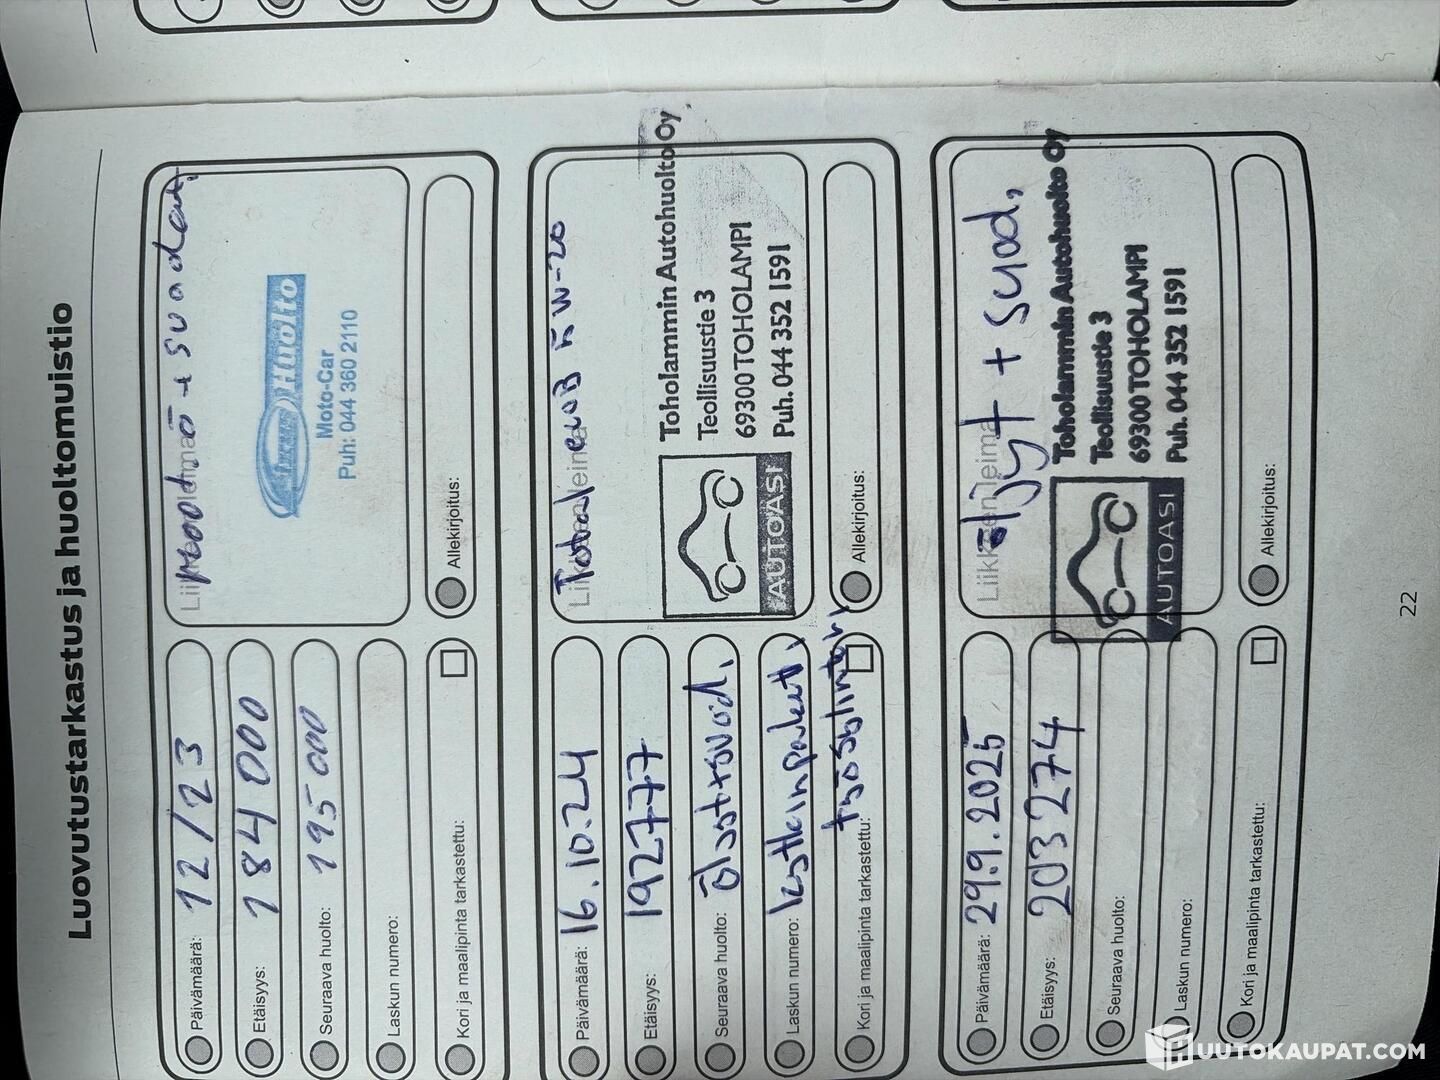 Luovutustarkastus ja huoltomuistio
Päivämäärä: 12/23
Etäisyys: 184 000
Seuraava huolto: 195 000
Laskun numero:
Kori ja maalipinta tarkastettu:
+ suodat.
Huolto
Moto-Car
Puh: 044 360 2110
Allekirjoitus:
Päivämäärä: 16.10.24
Etäisyys: 192777
Seuraava huolto:
Laskun numero:
Kori ja maalipinta tarkastettu:
Total 5W-20
Toholammin Autohuolto Oy
Teollisuustie 3
69300 TOHOLAMPI
Puh. 044 352 1591
AUTOASI
Allekirjoitus:
Päivämäärä: 29.9.2025
Etäisyys: 203 274
Seuraava huolto:
Laskun numero:
Kori ja maalipinta tarkastettu:
Liikkeen leima
öljyt + suod.
Toholammin Autohuolto Oy
Teollisuustie 3
69300 TOHOLAMPI
Puh. 044 352 1591
AUTOASI
Allekirjoitus:
22
HUUTOKAUPAT.COM